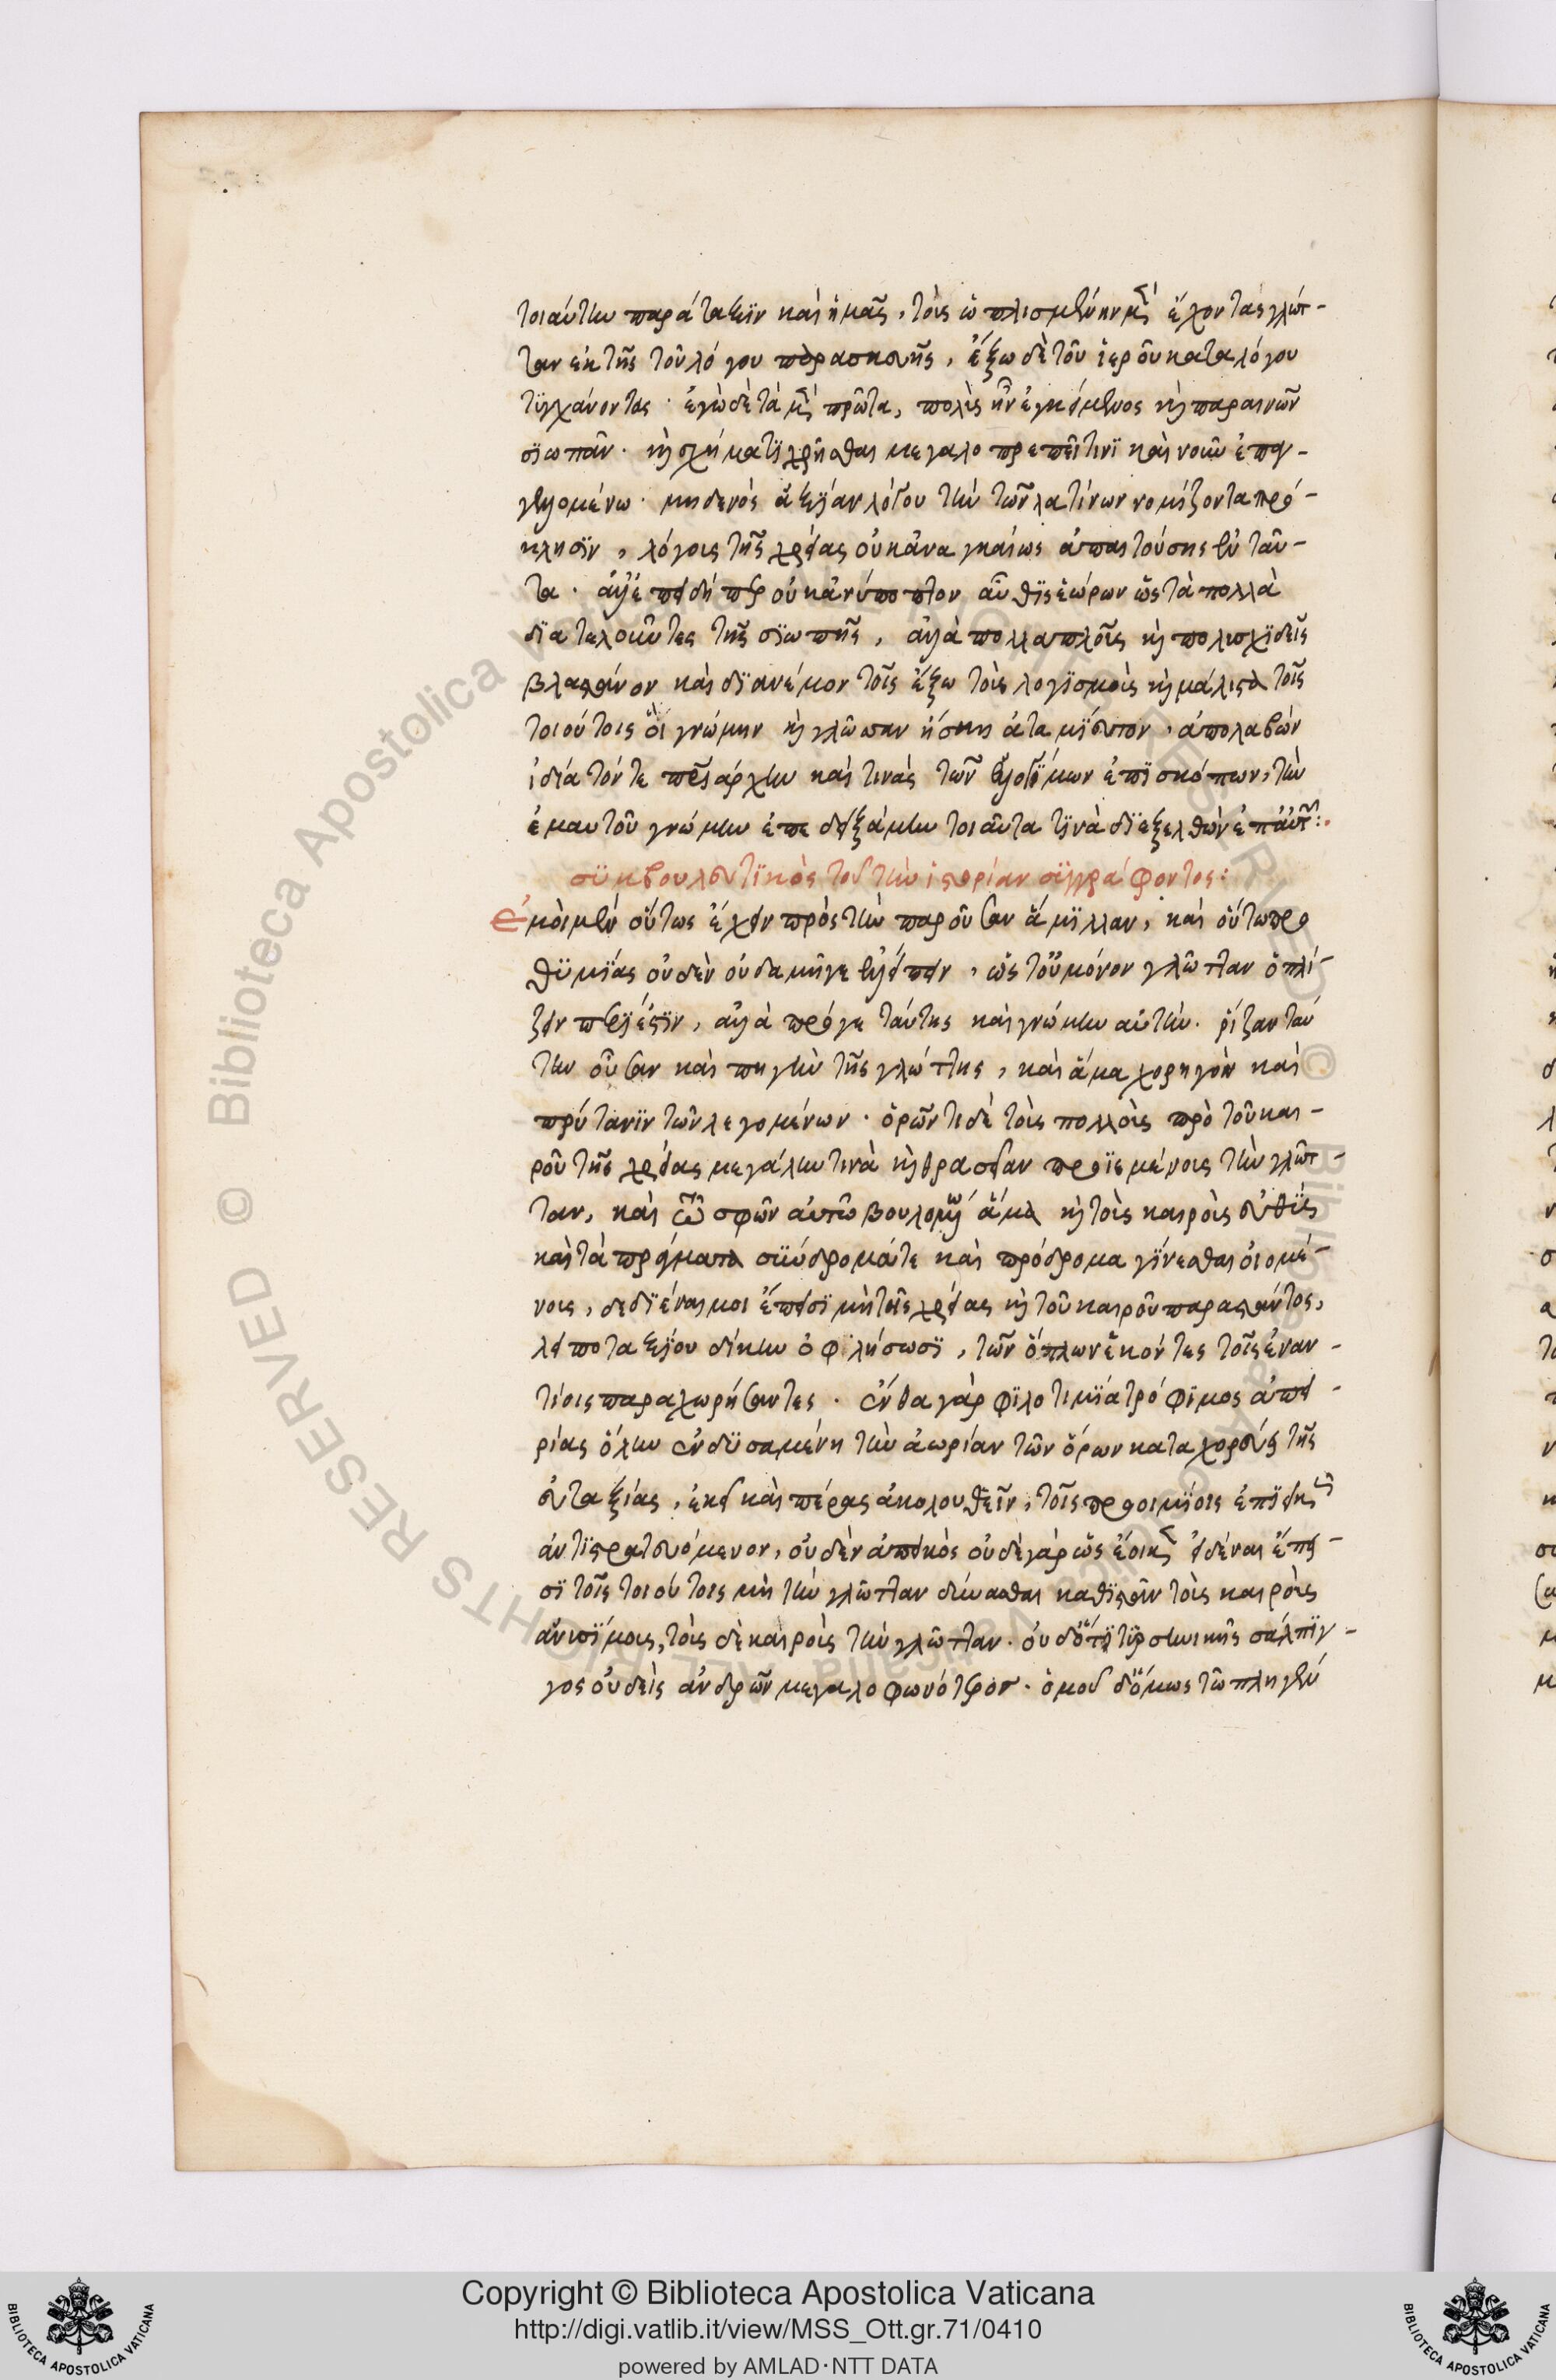 τοιαύτην παράταξιν καὶ ἡμᾶς, τοὺς ὡπλισμένην μὲν ἔχοντας γλώτ-
ταν ἐκ τῆς τοῦ λόγου παρασκευῆς, ἔξω δὲ τοῦ ἱεροῦ καταλόγου
τυγχάνοντας · ἐγὼ δὲ τὰ μὲν πρῶτα, πολὺς ἦν ἐγκείμενος καὶ παραινῶν
σιωπᾶν · καὶ σχήματι χρῆσθαι μεγαλοπρεπεῖ τινὶ καὶ νοῦν
· μηδενὸς ἀξίαν λόγου τὴν τῶν λατίνων νομίζοντα πρό-
κλησιν, λόγοις τῆς χρείας οὐκ ἀναγκαίως ἀπαιτούσης ἐν ταῦ-
τα · ἀλλ' ἐπειδήπερ οὐκ ἀνύποπτον αὖθις ἑώρων ὡς τὰ πολλὰ
διατελοῦντες τῆς σιωπῆς, ἀλλὰ πολλαπλοῖς καὶ πολυσχιδεῖς
βλαστάνον καὶ διανέμον τοῖς ἔξω τοὺς λογισμοὺς καὶ μάλιστα τοῖς
τοιούτοις οἳ γνώμην καὶ γλῶσσαν ἤσκην ἀταμίευτον, ἀπολαβὼν
ἰδίᾳ τόν τε πατριάρχην καὶ τινὰς τῶν ἐλλογίμων ἐπισκόπων, τὴν
ἐμαυτοῦ γνώμην ἐπεδειξάμην τοιαῦτα τινὰ διεξελθὼν ἐπ' αὐτῶν :
συμβουλευτικὸς τοῦ τὴν ἱστορίαν συγγράφοντος :
Ἐμοὶ μὲν οὕτως ἔχειν πρὸς τὴν παροῦσαν ἅμιλλαν, καὶ οὕτω προ
θυμίας οὐδὲν οὐδαμῆ γε ἐλλείπειν, ὡς τοῦ μόνον γλῶτταν ὁπλί-
ζειν περίεστιν, ἀλλὰ πρό γε ταύτης καὶ γνώμην αὐτήν. ῥίζαν ταύ
την οὖσαν καὶ πηγὴν τῆς γλώττης, καὶ ἅμα χορηγὸν καὶ
πρύτανιν τῶν λεγομένων · ὁρῶντι δὲ τοὺς πολλοὺς πρὸ τοῦ και-
ροῦ τῆς χρείας μεγάλην τινὰ καὶ θρασεῖαν προϊεμένους τὴν γλῶτ-
ταν, καὶ τῶ σφῶν αὐτῶν βουλομένω ἅμα καὶ τοὺς καιροὺς εὐθὺς
καὶ τὰ πράγματα σύνδρομά τε καὶ πρόδρομα γίνεσθαι οἰομέ-
νοις, δεδιέναι μοι ἔπεισι μὴ τῆς χρείας καὶ τοῦ καιροῦ παραστάντος,
λειποταξίου δίκην ὀφλήσωσι, τῶν ὅπλων ἑκόντες τοῖς ἐναν-
τίοις παραχωρήσαντες · ἔνθα γὰρ φιλοτιμία τρόφιμος ἀπει-
ρίας ὅλην ἐνδυσαμένη τὴν ἀωρίαν τῶν ὅρων καταχορεύει τῆς
εὐταξίας, ἐκεῖ καὶ πέρας ἀκολουθεῖν, τοῖς προοιμίοις ἐπιεικῶς
ἀντιστρατευόμενον, οὐδὲν ἀπεικός οὐδὲ γὰρ ὡς ἔοικεν εἰδέναι ἔπει-
σι τοῖς τοιούτοις μὴ τὴν γλῶτταν δύνασθαι καθιστᾶν τοὺς καιροὺς
, τοὺς δὲ καιροὺς τὴν γλῶτταν · οὐδ' ὅτι τυρσηνικῆς σάλπιγ-
γος οὐδεὶς ἀνδρῶν μεγαλοφωνότερος · ὁμοῦ δ' ὅμως τῶ πληγὲν
Copyright © Biblioteca Apostolica Vaticana
http://digi.vatlib.it/view/MSS_Ott.gr.71/0410
powered by AMLAD·NTT DATA